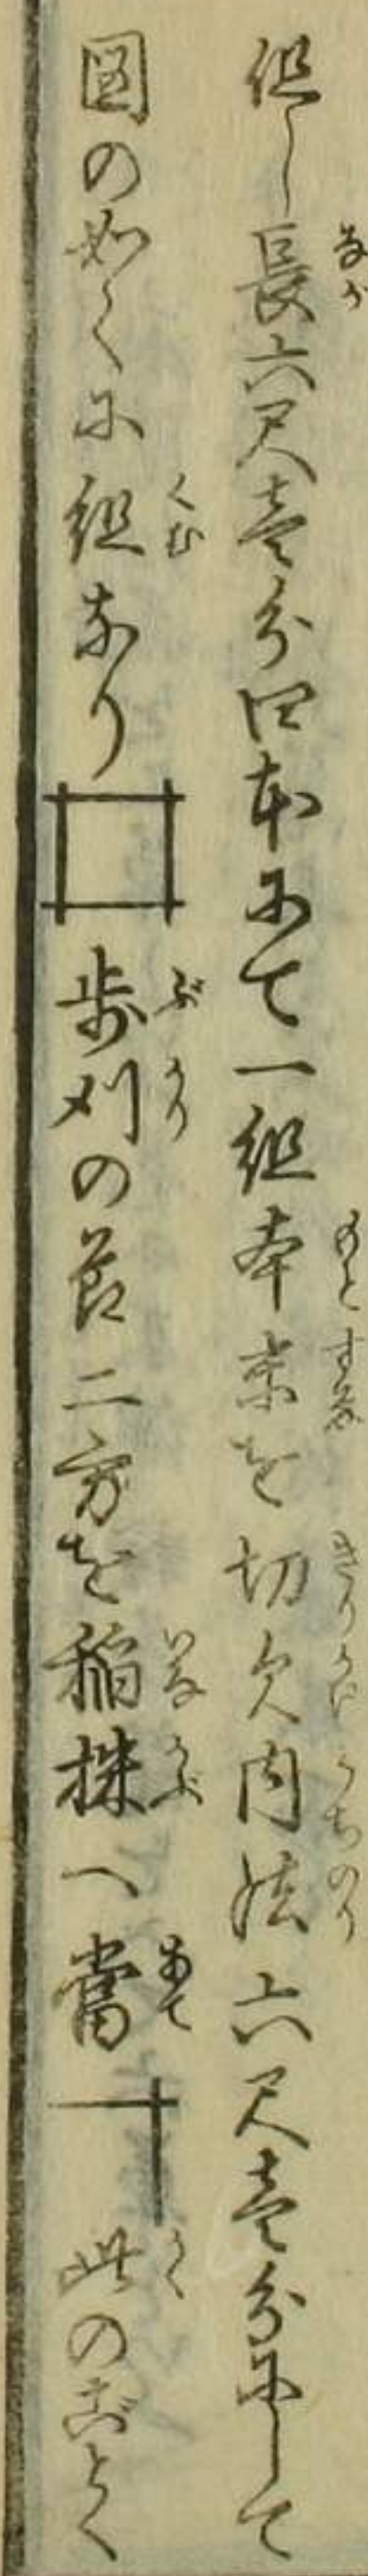 但し長六尺壱分四本にて一組本末を切欠内法六尺壱分にして
図の如くに組なり歩刈の節二方を稲株へ當此のごとく